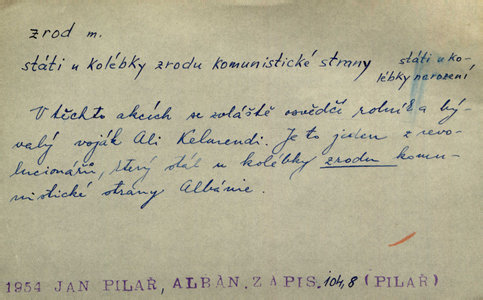 zrod m.
státi u kolébky zrodu komunistické strany
státi u ko-
lébky narození
V těchto akcích se zvláště osvědčí rolník a bý-
valý voják Ali Kelmendi. Je to jeden z revo-
lucionářů, který stál u kolébky zrodu komu-
nistické strany Albánie.
1954 JAN PILAŘ, ALBÁN. ZÁPIS. 104,8 (PILAŘ)